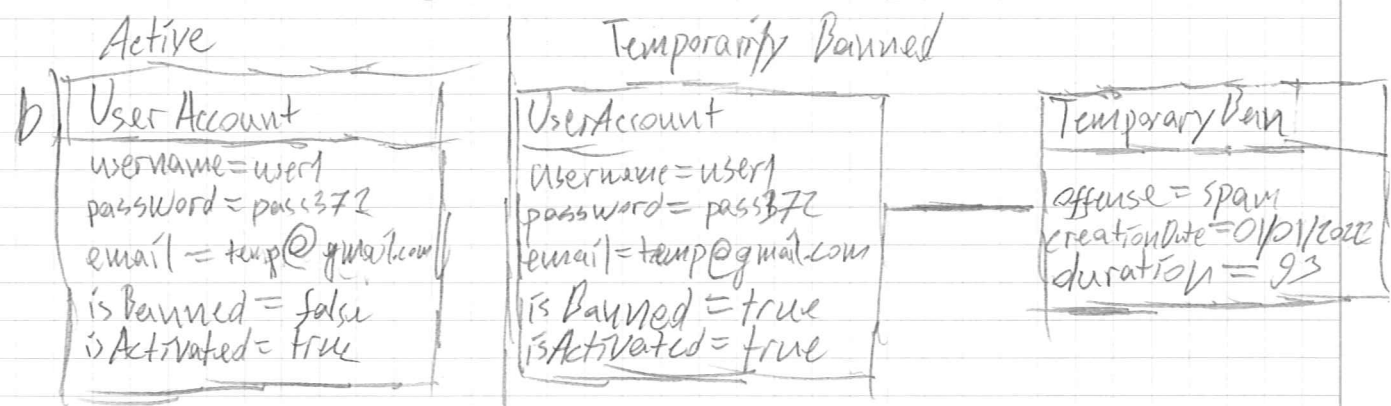 Active
Temporarily Banned
b)
UserAccount
username=user1
password=pass372
email=temp@gmail.com
isBanned=false
isActivated=true
UserAccount
username=user1
password=pass372
email=temp@gmail.com
isBanned=true
isActivated=true
TemporaryBan
offense=spam
creationDate=01/01/2022
duration=93